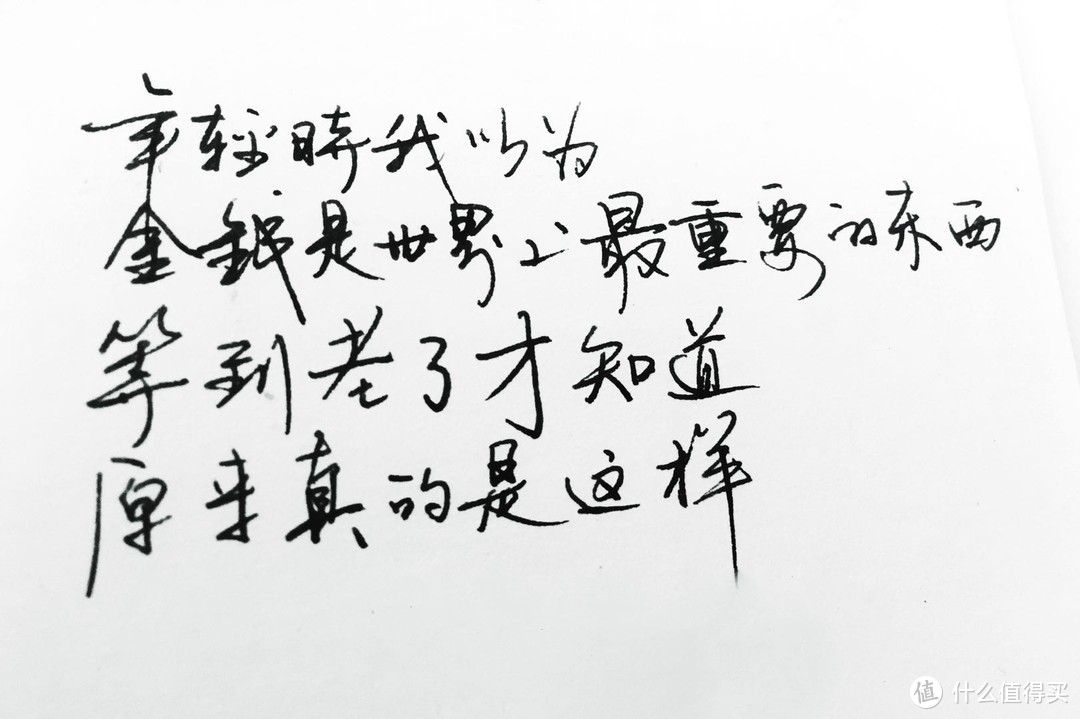 年轻時我以为
金錢是世界上最重要的东西
等到老了才知道
原来真的是这样
值 什么值得买